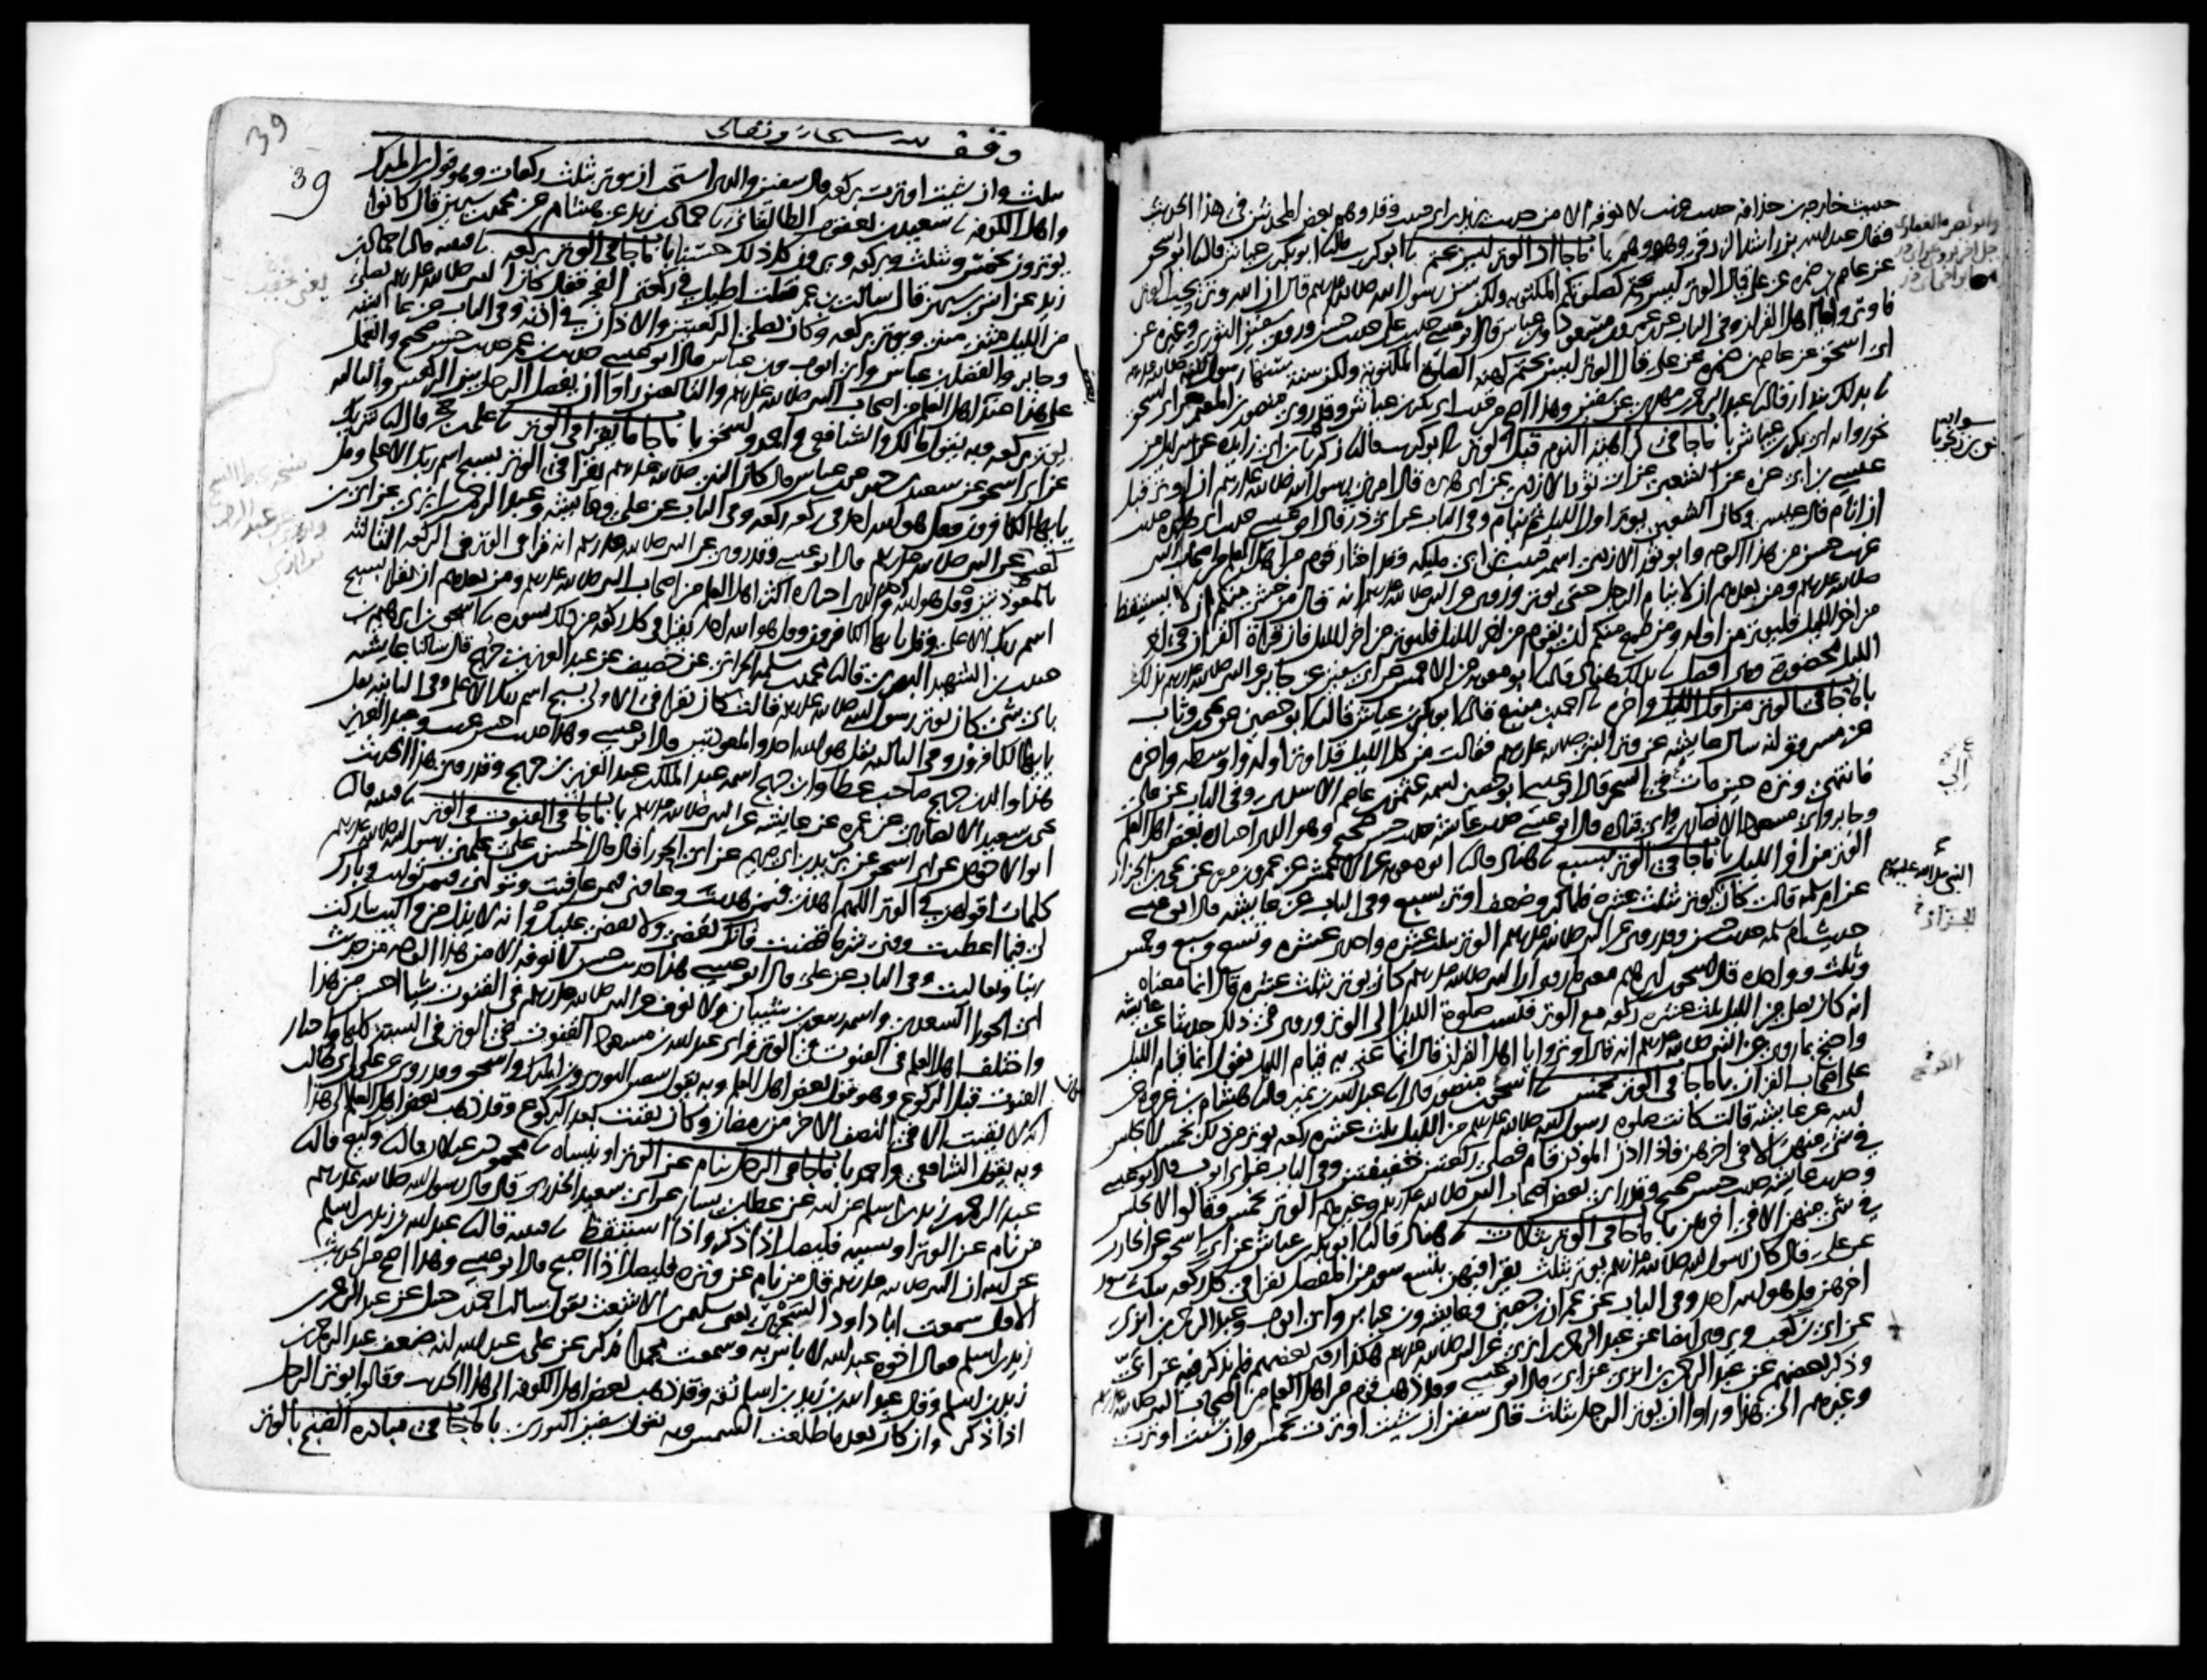 حديث خارجة بن حذافة حديث غريب لا نعرفه الا من حديث يزيد بن ابي حبيب وقد وهم بعض المحدثين في هذا الحديث
فقال عبد الله بن راشد الزرقي وهو وهم باب ما جا ان الوتر ليس بحتم ابو كريب ابو بكر بن عياش ابو اسحق
عن عاصم بن ضمرة عن علي قال الوتر ليس بحتم كصلوتكم المكتوبة ولكن سن رسول الله صلى الله عليه وسلم قال ان الله وتر يحب الوتر
فاوتروا يا اهل القران وفي الباب عن ابن عمر وابن مسعود وابن عباس قال ابو عيسى حديث علي حديث حسن وروى سفين الثوري وغيره عن
ابي اسحق عن عاصم بن ضمرة عن علي قال الوتر ليس بحتم كهيئة الصلوة المكتوبة ولكن سنة سنها رسول الله صلى الله عليه وسلم
بذلك بندار عبد الرحمن بن مهدي عن سفين وهذا اصح من حديث ابي بكر بن عياش وقد روى منصور بن المعتمر عن ابي اسحق
نحو رواية ابي بكر بن عياش باب ما جا في كراهية النوم قبل الوتر ابو كريب زكريا بن ابي زايدة عن اسرايل عن
عيسى بن ابي عزة عن الشعبي عن ابي ثور الازدي عن ابي هريرة قال امرني رسول الله صلى الله عليه وسلم ان اوتر قبل
ان انام قال عيسى وكان الشعبي يوتر اول الليل ثم ينام وفي الباب عن ابي ذر قال ابو عيسى حديث ابي هريرة حديث
غريب حسن من هذا الوجه وابو ثور الازدي اسمه حبيب بن ابي مليكة وقد اختار قوم من اهل العلم من اصحاب النبي
صلى الله عليه وسلم ومن بعدهم ان لا ينام الرجل حتى يوتر وروي عن النبي صلى الله عليه وسلم انه قال من خشي منكم ان لا يستيقظ
من اخر الليل فليوتر من اوله ومن طمع منكم ان يقوم من اخر الليل فليوتر من اخر الليل فان قراة القران في اخر
الليل محضورة وهي افضل بذلك هناد ابو معوية عن الاعمش عن ابي سفين عن جابر عن النبي صلى الله عليه وسلم بذلك
باب ما جا في الوتر من اول الليل واخره احمد بن منيع ابو بكر بن عياش ابو حصين عن يحيى بن وثاب
عن مسروق انه سال عايشة عن وتر النبي صلى الله عليه وسلم فقالت من كل الليل قد اوتر اوله واوسطه واخره
فانتهى وتره حين مات في السحر قال ابو عيسى ابو حصين اسمه عثمن بن عاصم الاسدي وفي الباب عن علي
وجابر وابي مسعود الانصاري وابي قتادة قال ابو عيسى حديث عايشة حديث حسن صحيح وهو الذي اختاره بعض اهل العلم
الوتر من اخر الليل باب ما جا في الوتر بسبع هناد ابو معوية عن الاعمش عن عمرو بن مرة عن يحيى بن الجزار
عن ام سلمة قالت كان يوتر بثلث عشرة فلما كبر وضعف اوتر بسبع وفي الباب عن عايشة قال ابو عيسى
حديث ام سلمة حديث حسن وقد روي عن النبي صلى الله عليه وسلم الوتر بثلث عشرة واحدى عشرة وتسع وسبع وخمس
وثلث وواحدة قال اسحق بن ابراهيم معنى ما روي ان النبي صلى الله عليه وسلم كان يوتر بثلث عشرة قال انما معناه
انه كان يصلي من الليل ثلث عشرة ركعة مع الوتر فنسبت صلوة الليل الى الوتر وروي في ذلك حديثا عن عايشة
واحتج بما روي عن النبي صلى الله عليه وسلم انه قال اوتروا يا اهل القران قال انما عني به قيام الليل يقول انما قيام الليل
على اصحاب القران باب ما جا في الوتر بخمس اسحق بن منصور عبد الله بن نمير هشام بن عروة عن
ابيه عن عايشة قالت كانت صلوة رسول الله صلى الله عليه وسلم من الليل ثلث عشرة ركعة يوتر من ذلك بخمس لا يجلس
في شي منهن الا في اخرهن فاذا اذن الموذن قام فصلى ركعتين خفيفتين وفي الباب عن ابي ايوب قال ابو عيسى
وحديث عايشة حديث حسن صحيح وقد راى بعض اصحاب النبي صلى الله عليه وسلم وغيرهم الوتر بخمس وقالوا لا يجلس
في شي منهن الا في اخرهن باب ما جا في الوتر بثلاث هناد ابو بكر بن عياش عن ابي اسحق عن الحارث
عن علي قال كان رسول الله صلى الله عليه وسلم يوتر بثلث يقرا فيهن بتسع سور من المفصل يقرا في كل ركعة بثلث سور
اخرهن قل هو الله احد وفي الباب عن عمران بن حصين وعايشة وابن عباس وابي ايوب وعبد الرحمن بن ابزى
عن ابي بن كعب ويروى ايضا عن عبد الرحمن بن ابزى عن النبي صلى الله عليه وسلم هكذا روى بعضهم فلم يذكر فيه عن ابي
وذكر بعضهم عن عبد الرحمن بن ابزى عن ابي قال ابو عيسى وقد ذهب قوم من اهل العلم من اصحاب النبي صلى الله عليه وسلم
وغيرهم الى هذا وراوا ان يوتر الرجل بثلث قال سفين ان شيت اوترت بخمس وان شيت اوترت
النبي صلى الله عليه وسلم
وقف لله سبحانه وتعالى
39
39
بثلث وان شيت اوترت بركعة قال سفين والذي استحب ان يوتر بثلث ركعات وهو قول ابن المبارك
واهل الكوفة سعيد بن يعقوب الطالقاني حماد بن زيد عن هشام عن محمد بن سيرين قال كانوا
يوترون بخمس وبثلث وبركعة ويرون كل ذلك حسنا باب ما جا في الوتر بركعة قتيبة حماد بن
زيد عن انس بن سيرين قال سالت ابن عمر فقلت اطيل في ركعتي الفجر فقال كان النبي صلى الله عليه وسلم يصلي
من الليل مثنى مثنى ويوتر بركعة وكان يصلي الركعتين والاذان في اذنه وفي الباب عن عايشة
وجابر والفضل بن عباس وابي ايوب وابن عباس قال ابو عيسى حديث ابن عمر حديث حسن صحيح والعمل
على هذا عند بعض اهل العلم من اصحاب النبي صلى الله عليه وسلم والتابعين راوا ان يفصل الرجل بين الركعتين والثالثة
يوتر بركعة وبه يقول مالك والشافعي واحمد واسحق باب ما جا ما يقرا في الوتر علي بن حجر شريك
عن ابي اسحق عن سعيد بن جبير عن ابن عباس قال كان النبي صلى الله عليه وسلم يقرا في الوتر بسبح اسم ربك الاعلى وقل
يا يها الكافرون وقل هو الله احد في ركعة ركعة وفي الباب عن علي وعايشة وعبد الرحمن بن ابزى عن ابي بن
كعب عن النبي صلى الله عليه وسلم قال ابو عيسى وقد روي عن النبي صلى الله عليه وسلم انه قرا في الوتر في الركعة الثالثة
بالمعوذتين وقل هو الله احد والذي اختاره اكثر اهل العلم من اصحاب النبي صلى الله عليه وسلم ومن بعدهم ان يقرا بسبح
اسم ربك الاعلى وقل يا يها الكافرون وقل هو الله احد يقرا في كل ركعة من ذلك بسورة اسحق بن ابراهيم بن
حبيب بن الشهيد البصري محمد بن سلمة الحراني عن خصيف عن عبد العزيز بن جريج قال سالنا عايشة
باي شي كان يوتر رسول الله صلى الله عليه وسلم قالت كان يقرا في الاولى بسبح اسم ربك الاعلى وفي الثانية بقل
يا يها الكافرون وفي الثالثة بقل هو الله احد والمعوذتين قال ابو عيسى وهذا حديث حسن غريب وعبد العزيز
هذا والد ابن جريج صاحب عطا وابن جريج اسمه عبد الملك بن عبد العزيز بن جريج وقد روى هذا الحديث
يحيى بن سعيد الانصاري عن عمرة عن عايشة عن النبي صلى الله عليه وسلم باب ما جا في القنوت في الوتر قتيبة
ابو الاحوص عن ابي اسحق عن بريد بن ابي مريم عن ابي الحورا قال قال الحسن بن علي علمني رسول الله صلى الله عليه وسلم
كلمات اقولهن في الوتر اللهم اهدني فيمن هديت وعافني فيمن عافيت وتولني فيمن توليت وبارك
لي فيما اعطيت وقني شر ما قضيت فانك تقضي ولا يقضى عليك وانه لا يذل من واليت تباركت
ربنا وتعاليت وفي الباب عن علي قال ابو عيسى هذا حديث حسن لا نعرفه الا من هذا الوجه من حديث
ابي الحورا السعدي واسمه ربيعة بن شيبان ولا نعرف عن النبي صلى الله عليه وسلم في القنوت شيا احسن من هذا
واختلف اهل العلم في القنوت في الوتر فراى عبد الله بن مسعود القنوت في الوتر في السنة كلها واختار
القنوت قبل الركوع وهو قول بعض اهل العلم وبه يقول سفين الثوري وابن المبارك واسحق وقد روي عن علي بن ابي طالب
انه لا يقنت الا في النصف الاخر من رمضان وكان يقنت بعد الركوع وقد ذهب بعض اهل العلم الى هذا
وبه يقول الشافعي واحمد باب ما جا في الرجل ينام عن الوتر او ينساه محمود بن غيلان وكيع
عبد الرحمن بن زيد بن اسلم عن ابيه عن عطا بن يسار عن ابي سعيد الخدري قال قال رسول الله صلى الله عليه وسلم
من نام عن الوتر او نسيه فليصل اذا ذكر واذا استيقظ قتيبة عبد الله بن زيد بن اسلم
عن ابيه ان النبي صلى الله عليه وسلم قال من نام عن وتره فليصل اذا اصبح قال ابو عيسى وهذا اصح من الحديث
الاول سمعت ابا داود السجزي يعني سليمن بن الاشعث يقول سالت احمد بن حنبل عن عبد الرحمن بن
زيد بن اسلم فقال اخوه عبد الله لا باس به وسمعت محمدا يذكر عن علي بن عبد الله انه ضعف عبد الرحمن بن
زيد بن اسلم وقال عبد الله بن زيد بن اسلم ثقة وقد ذهب بعض اهل الكوفة الى هذا الحديث وقالوا يوتر الرجل
اذا ذكر وان كان بعد ما طلعت الشمس وبه يقول سفين الثوري باب ما جا في مبادرة الصبح بالوتر